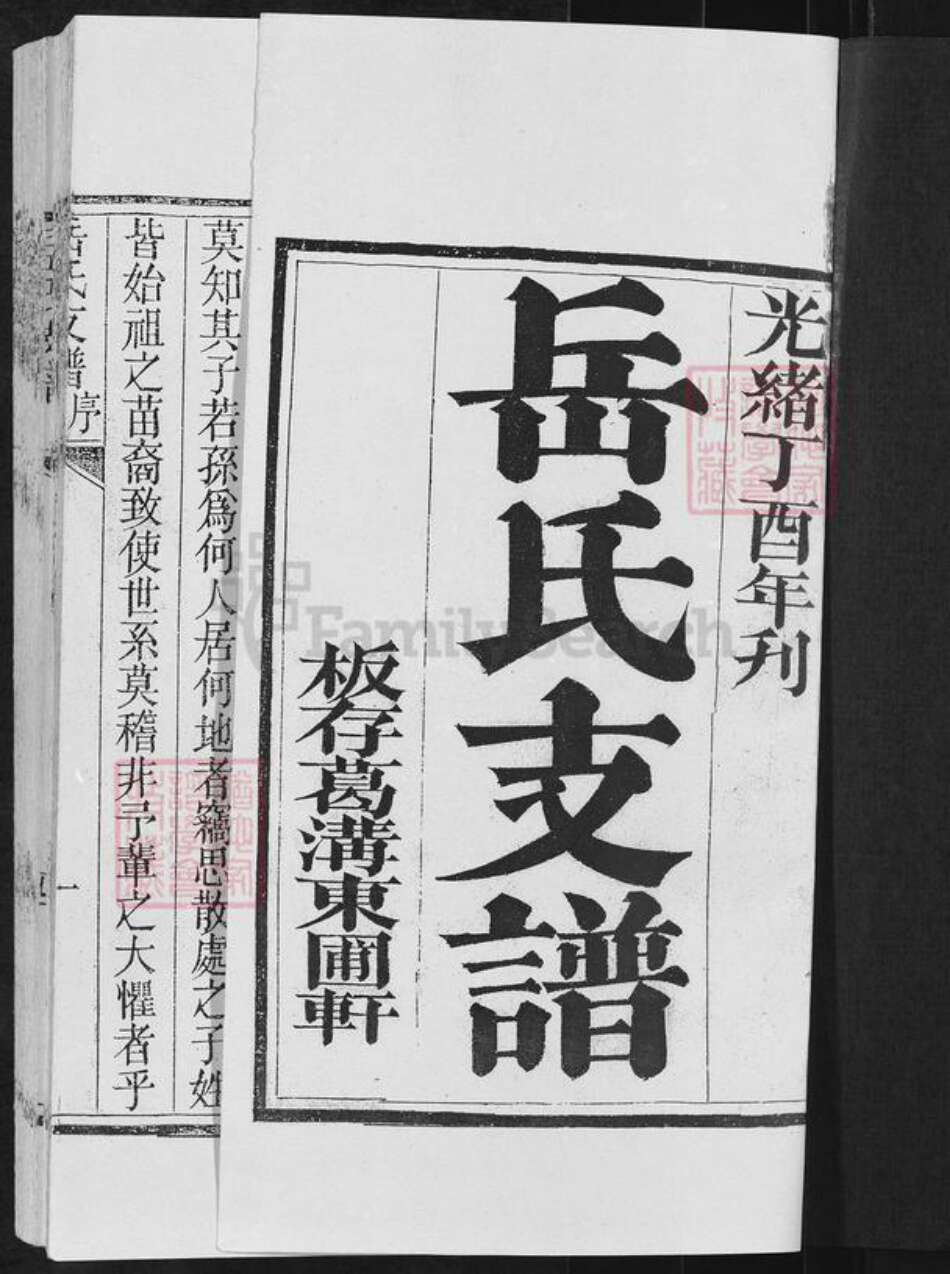 光緒丁酉年刊
岳氏支譜
板存葛溝東圃軒
莫知其子若孫爲何人居何地者竊思散處之子姓
皆始祖之苗裔致使世系莫稽非予輩之大懼者乎
岳氏支譜 序 一
FamilySearch